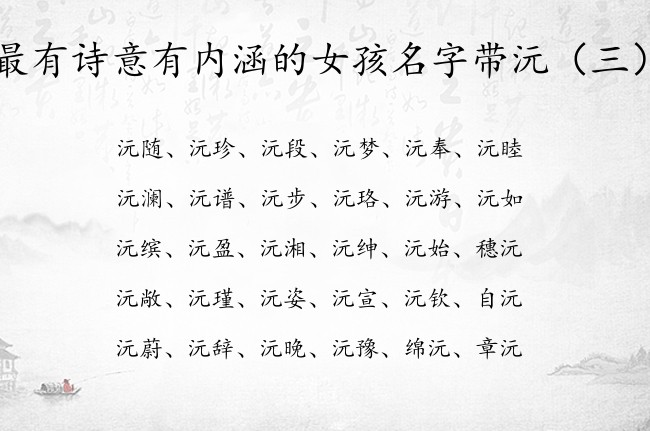 最有诗意有内涵的女孩名字带沅（三）
沅随、沅珍、沅段、沅梦、沅奉、沅睦
沅澜、沅谱、沅步、沅珞、沅游、沅如
沅缤、沅盈、沅湘、沅绅、沅始、穗沅
沅敞、沅瑾、沅姿、沅宣、沅钦、自沅
沅蔚、沅辞、沅晚、沅豫、绵沅、章沅